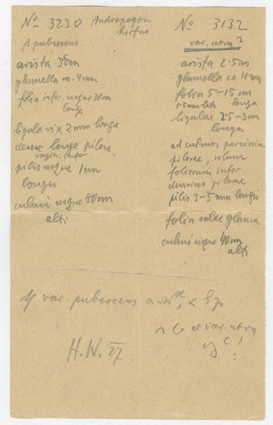 No 3230 Andropogon
hirtus
pubescens
arista 3cm
glumella ca. 4mm
folia infer. usque 30cm
longa
ligula vix 2mm longa
dense longe pilosa
vagin. infer.
pilis usque 1mm
longis
culmi usque 80cm
alti
No 3132
var. nova?
arista 2·5cm
glumella ca 4mm
folia 5–15cm
1·5mm lata longa
ligulae 2·5–3mm
longae
pilosae,
foliorum infer
pilosae
pilis 3–5mm longis
folia valde glauca
culmi usque 40cm
alti
var. pubescens
H.W. 27.